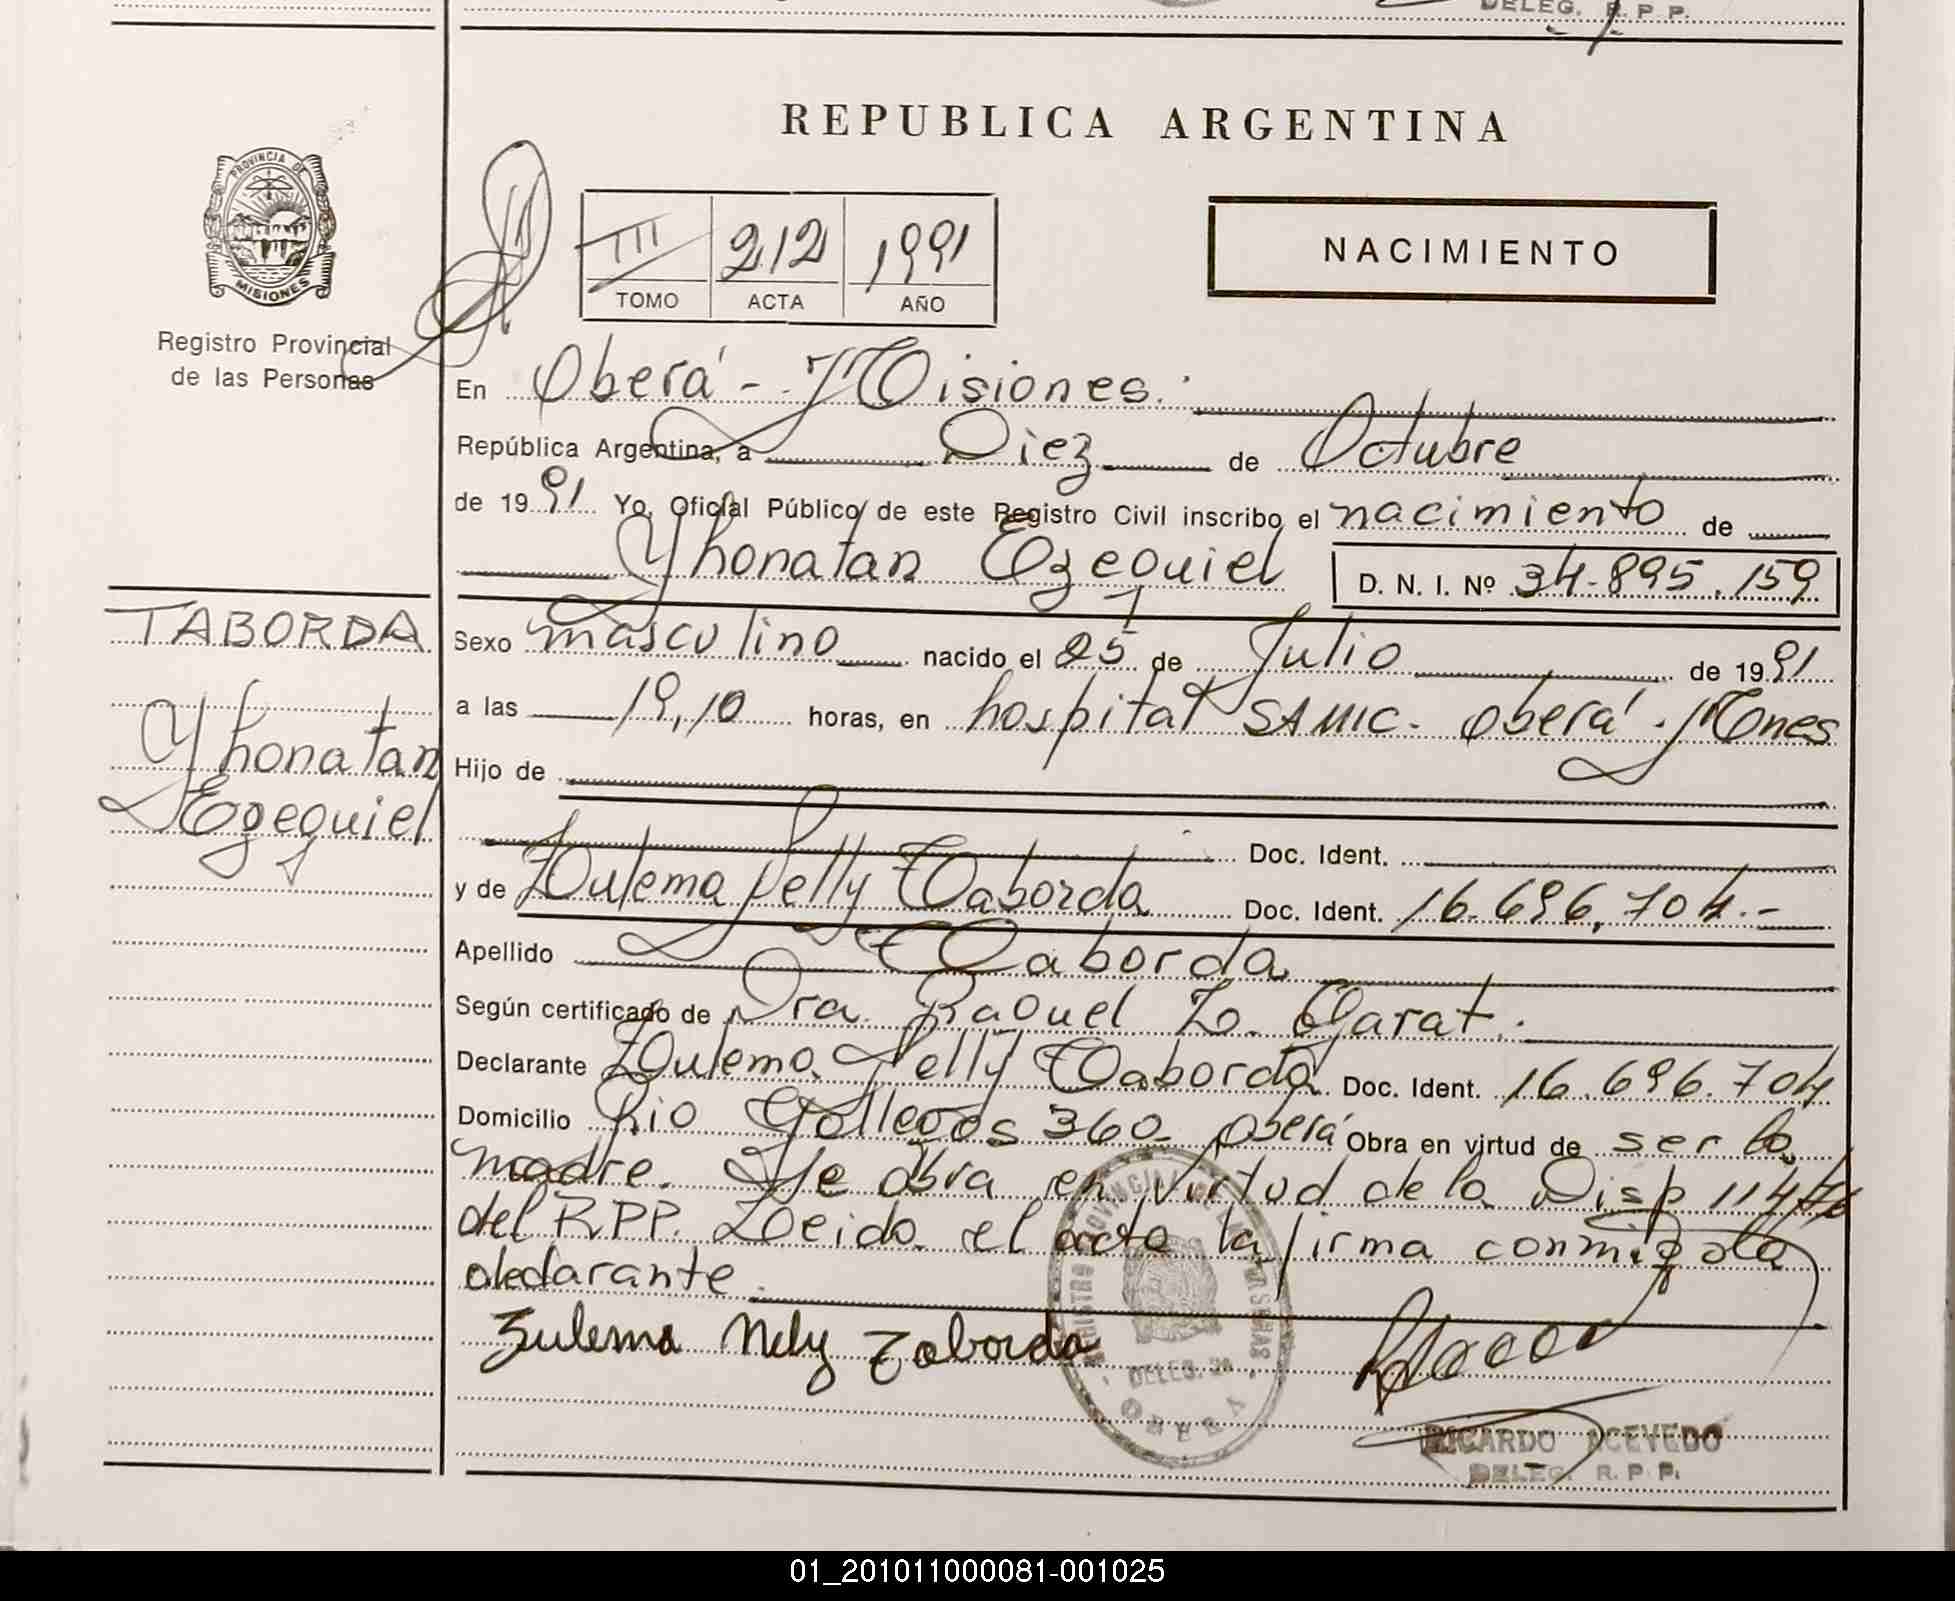 DELEG. R. P. P.
REPUBLICA ARGENTINA
PROVINCIA DE
MISIONES
Registro Provincial
de las Personas
III 212 1991
TOMO ACTA AÑO
NACIMIENTO
En Oberá - Misiones.
República Argentina, a Diez de Octubre
de 1991 Yo, Oficial Público de este Registro Civil inscribo el nacimiento de
Yhonatan Ezequiel D. N. I. Nº 34.895.159
TABORDA
Yhonatan
Ezequiel
Sexo masculino nacido el 25 de Julio de 1991
a las 19,10 horas, en hospital SAMIC - Oberá - Mones
Hijo de
Doc. Ident.
y de Zulema Nelly Taborda Doc. Ident. 16.696.704.-
Apellido Taborda
Según certificado de Dra. Raquel Z. Garat.
Declarante Zulema Nelly Taborda Doc. Ident. 16.696.704
Domicilio Rio Gallegos 360 - Oberá Obra en virtud de ser la
madre. Se obra en virtud de la Disp 114/76
del R.P.P. Leida el acta la firma conmigo la
declarante.
Zulema Nely Taborda
REGISTRO PROVINCIAL DE LAS PERSONAS
DELEG.
OBERA
RICARDO ACEVEDO
DELEG. R. P. P.
01_201011000081-001025